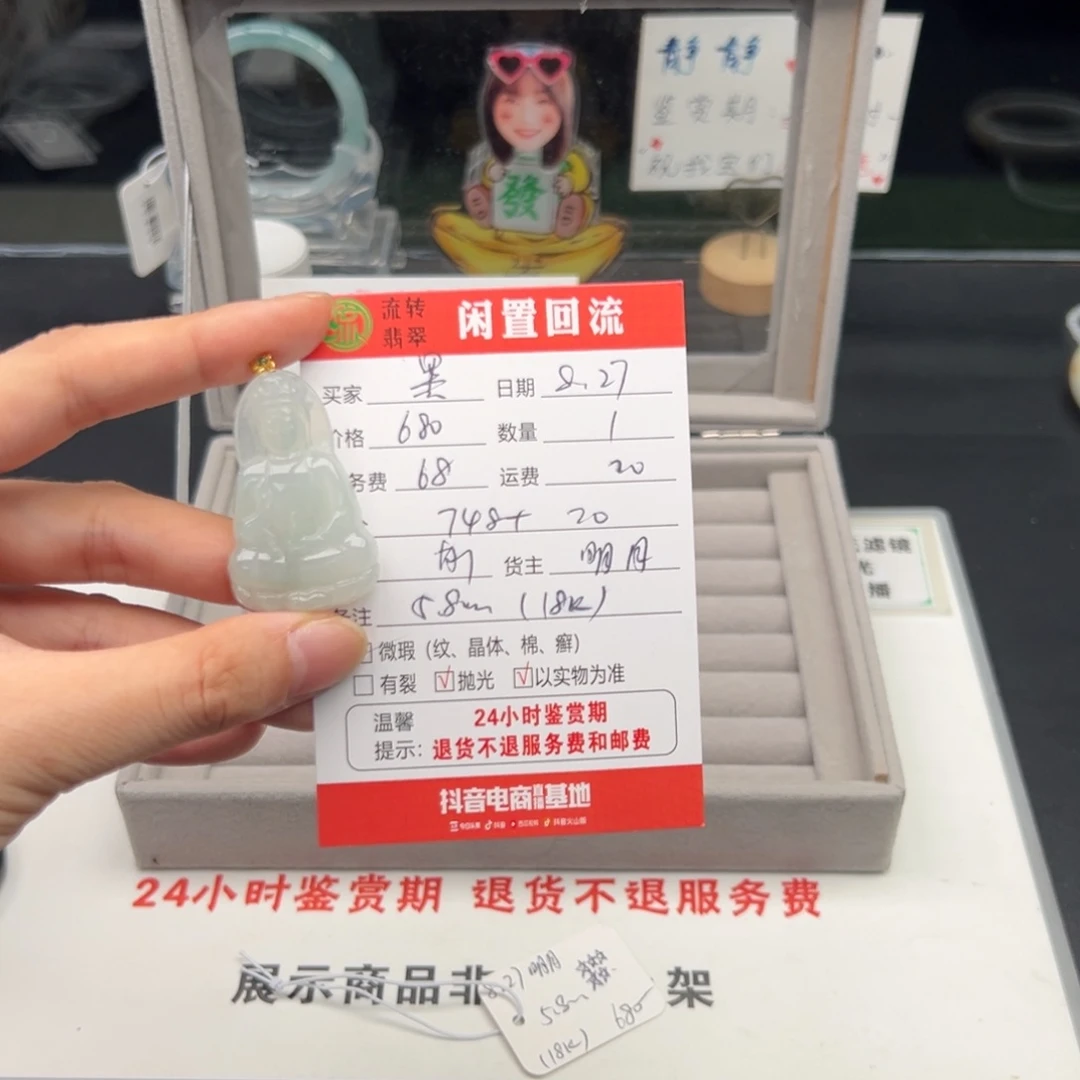 静 静
鉴赏期
祝我宝们
發
流转
翡翠
闲置回流
买家 黑 日期 8.27
价格 680 数量 1
务费 68 运费 20
748+ 20
货主 明月
备注 5.8cm (18K)
微瑕（纹、晶体、棉、癣）
有裂 抛光 以实物为准
温馨
提示：
24小时鉴赏期
退货不退服务费和邮费
抖音电商直播基地
滤镜
光
播
24小时鉴赏期 退货不退服务费
展示商品非 架
8.27 明月
5.8cm
(18K) 680